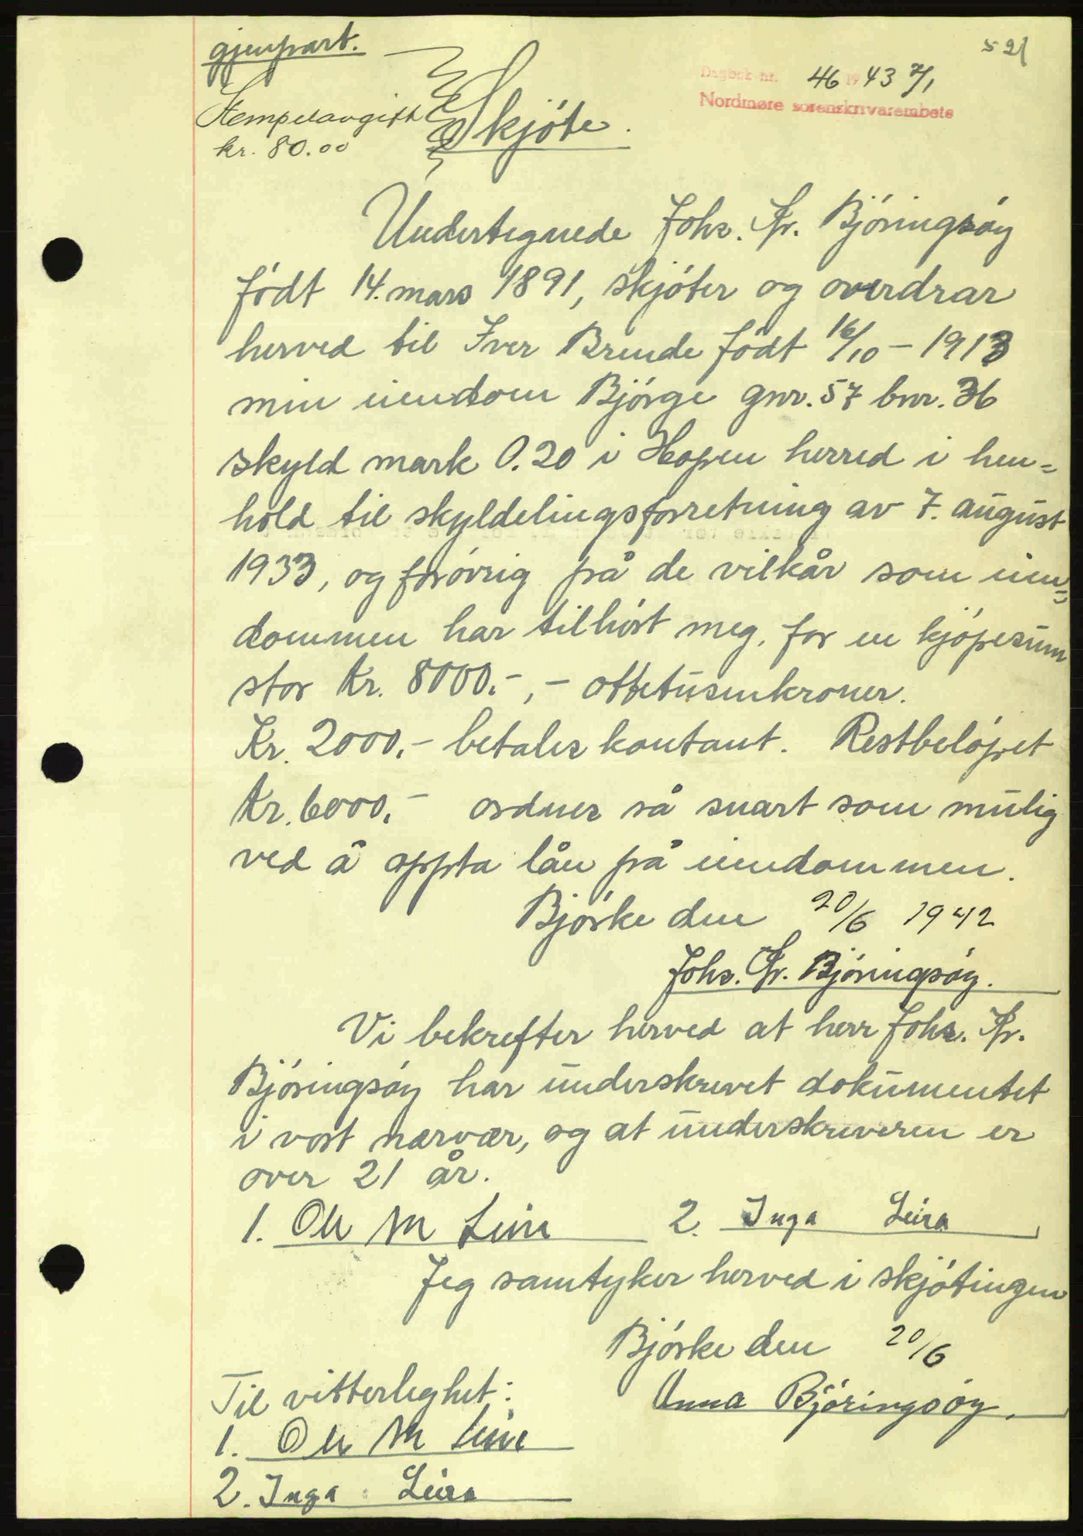 gjenpart.
521
Dagbok nr. 46 1943 7/1
Nordmøre sorenskrivarembete
Stempelavgift
kr. 80.00
Skjöte.
Undertegnede Johs. Kr. Björingsöy
födt 14. mars 1891, skjöter og overdrar
herved til Iver Brende födt 16/10 - 1913
min eiendom Björge gnr. 57 bnr. 36
skyld mark 0.20 i Hopen herred i hen=
hold til skyldelingsforretning av 7. august
1933, og forövrig på de vilkår som eien=
dommen har tilhört meg, for en kjöpesum
stor Kr. 8000.-,- ottetusenkroner.
Kr. 2000.- betales kontant. Restbelöpet
Kr. 6000.- ordnes så snart som mulig
ved å oppta lån på eiendommen.
Björke den 20/6 1942
Johs. Kr. Björingsöy.
Vi bekrefter herved at herr Johs. Kr.
Björingsöy har underskrevet dokumentet
i vort nærvær, og at underskriveren er
over 21 år.
1. Ole M Leira 2. Inga Leira
Jeg samtyker herved i skjötingen
Björke den 20/6
Anna Björingsöy.
Til vitterleghet:
1. Ole M Leira
2. Inga Leira